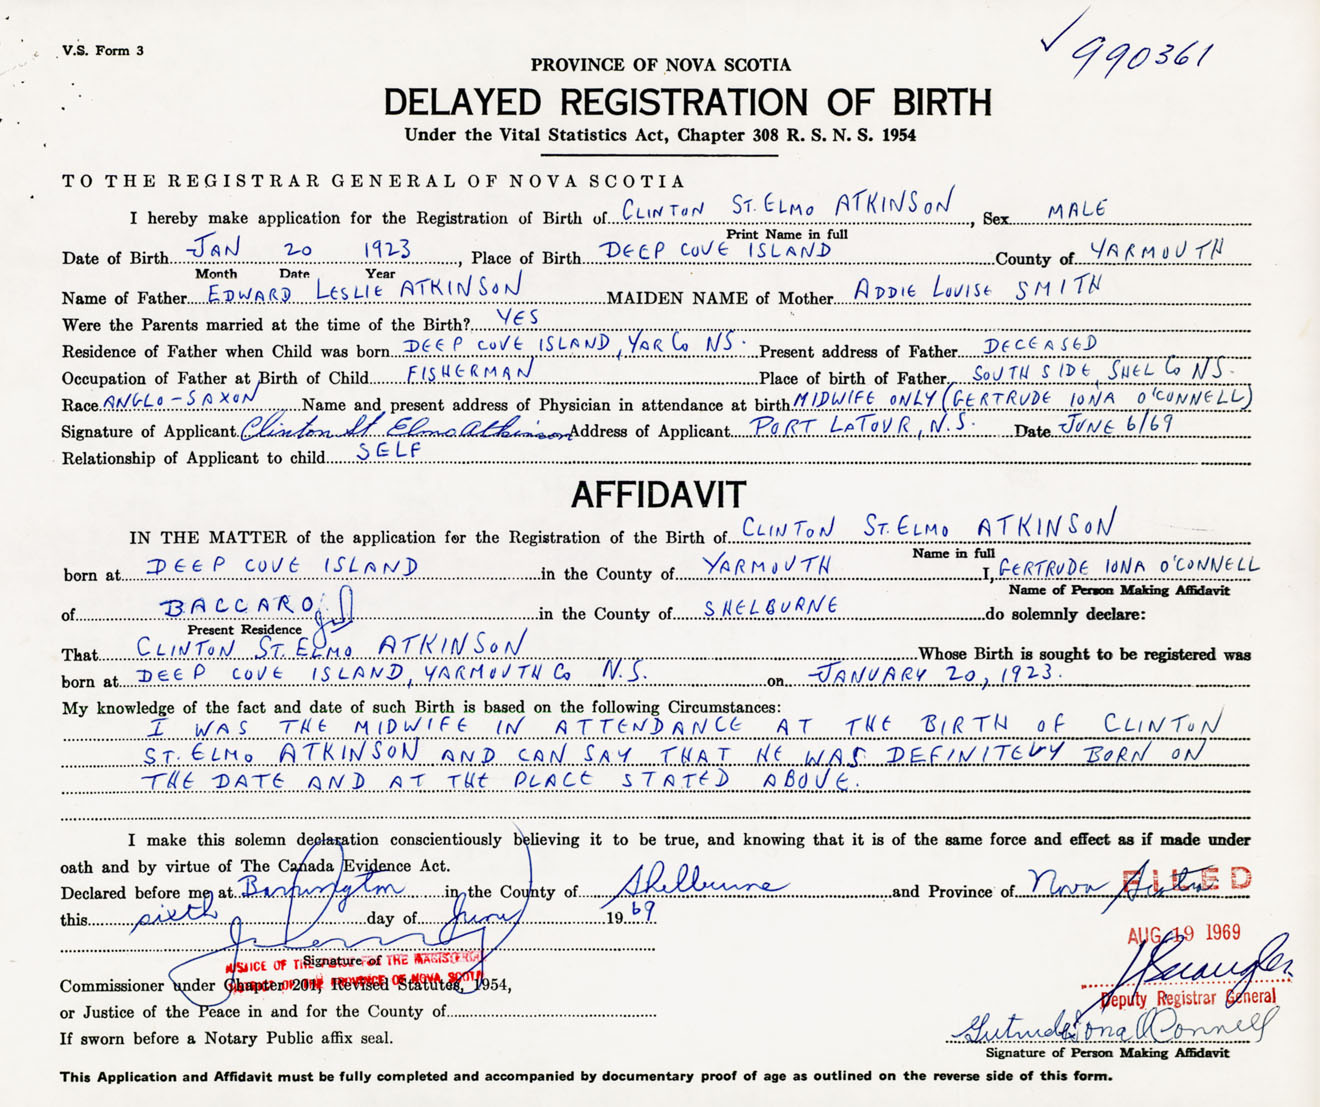 V.S. Form 3
990361
PROVINCE OF NOVA SCOTIA
DELAYED REGISTRATION OF BIRTH
Under the Vital Statistics Act, Chapter 308 R. S. N. S. 1954
TO THE REGISTRAR GENERAL OF NOVA SCOTIA
I hereby make application for the Registration of Birth of CLINTON ST. ELMO ATKINSON, Sex MALE
Print Name in full
Date of Birth JAN 20 1923, Place of Birth DEEP COVE ISLAND County of YARMOUTH
Month Date Year
Name of Father EDWARD LESLIE ATKINSON MAIDEN NAME of Mother ADDIE LOUISE SMITH
Were the Parents married at the time of the Birth? YES
Residence of Father when Child was born DEEP COVE ISLAND, YAR CO NS. Present address of Father DECEASED
Occupation of Father at Birth of Child FISHERMAN Place of birth of Father SOUTH SIDE, SHEL CO NS.
Race ANGLO-SAXON Name and present address of Physician in attendance at birth MIDWIFE ONLY (GERTRUDE IONA O'CONNELL)
Signature of Applicant Clinton St Elmo Atkinson Address of Applicant PORT LATOUR, N.S. Date JUNE 6/69
Relationship of Applicant to child SELF
AFFIDAVIT
IN THE MATTER of the application for the Registration of the Birth of CLINTON ST. ELMO ATKINSON
Name in full
born at DEEP COVE ISLAND in the County of YARMOUTH I, GERTRUDE IONA O'CONNELL
Name of Person Making Affidavit
of BACCARO in the County of SHELBURNE do solemnly declare:
Present Residence
That CLINTON ST. ELMO ATKINSON Whose Birth is sought to be registered was
born at DEEP COVE ISLAND, YARMOUTH CO N.S. on JANUARY 20, 1923.
My knowledge of the fact and date of such Birth is based on the following Circumstances:
I WAS THE MIDWIFE IN ATTENDANCE AT THE BIRTH OF CLINTON
ST. ELMO ATKINSON AND CAN SAY THAT HE WAS DEFINITELY BORN ON
THE DATE AND AT THE PLACE STATED ABOVE.
I make this solemn declaration conscientiously believing it to be true, and knowing that it is of the same force and effect as if made under
oath and by virtue of The Canada Evidence Act.
Declared before me at Barrington in the County of Shelburne and Province of Nova Scotia
FILED
this sixth day of June 1969
AUG 19 1969
Signature
JUSTICE OF THE FOR THE MAGISTERIAL
OF THE PROVINCE OF NOVA SCOTIA
Commissioner under Chapter 201, Revised Statutes, 1954,
Deputy Registrar General
or Justice of the Peace in and for the County of
Gertrude Iona O'Connell
If sworn before a Notary Public affix seal.
Signature of Person Making Affidavit
This Application and Affidavit must be fully completed and accompanied by documentary proof of age as outlined on the reverse side of this form.